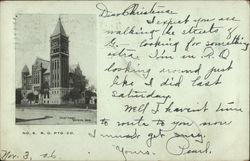 Dear Christena
I expect you are
walking the streets of
G. looking for something
extra I'm in R.O
looking around just
like I did last
Saturday
Well I haven't time
to write to you now
I must get
Yours. Pearl.
NO. 6. R. O. PTG. CO.
Nov. 3. 06